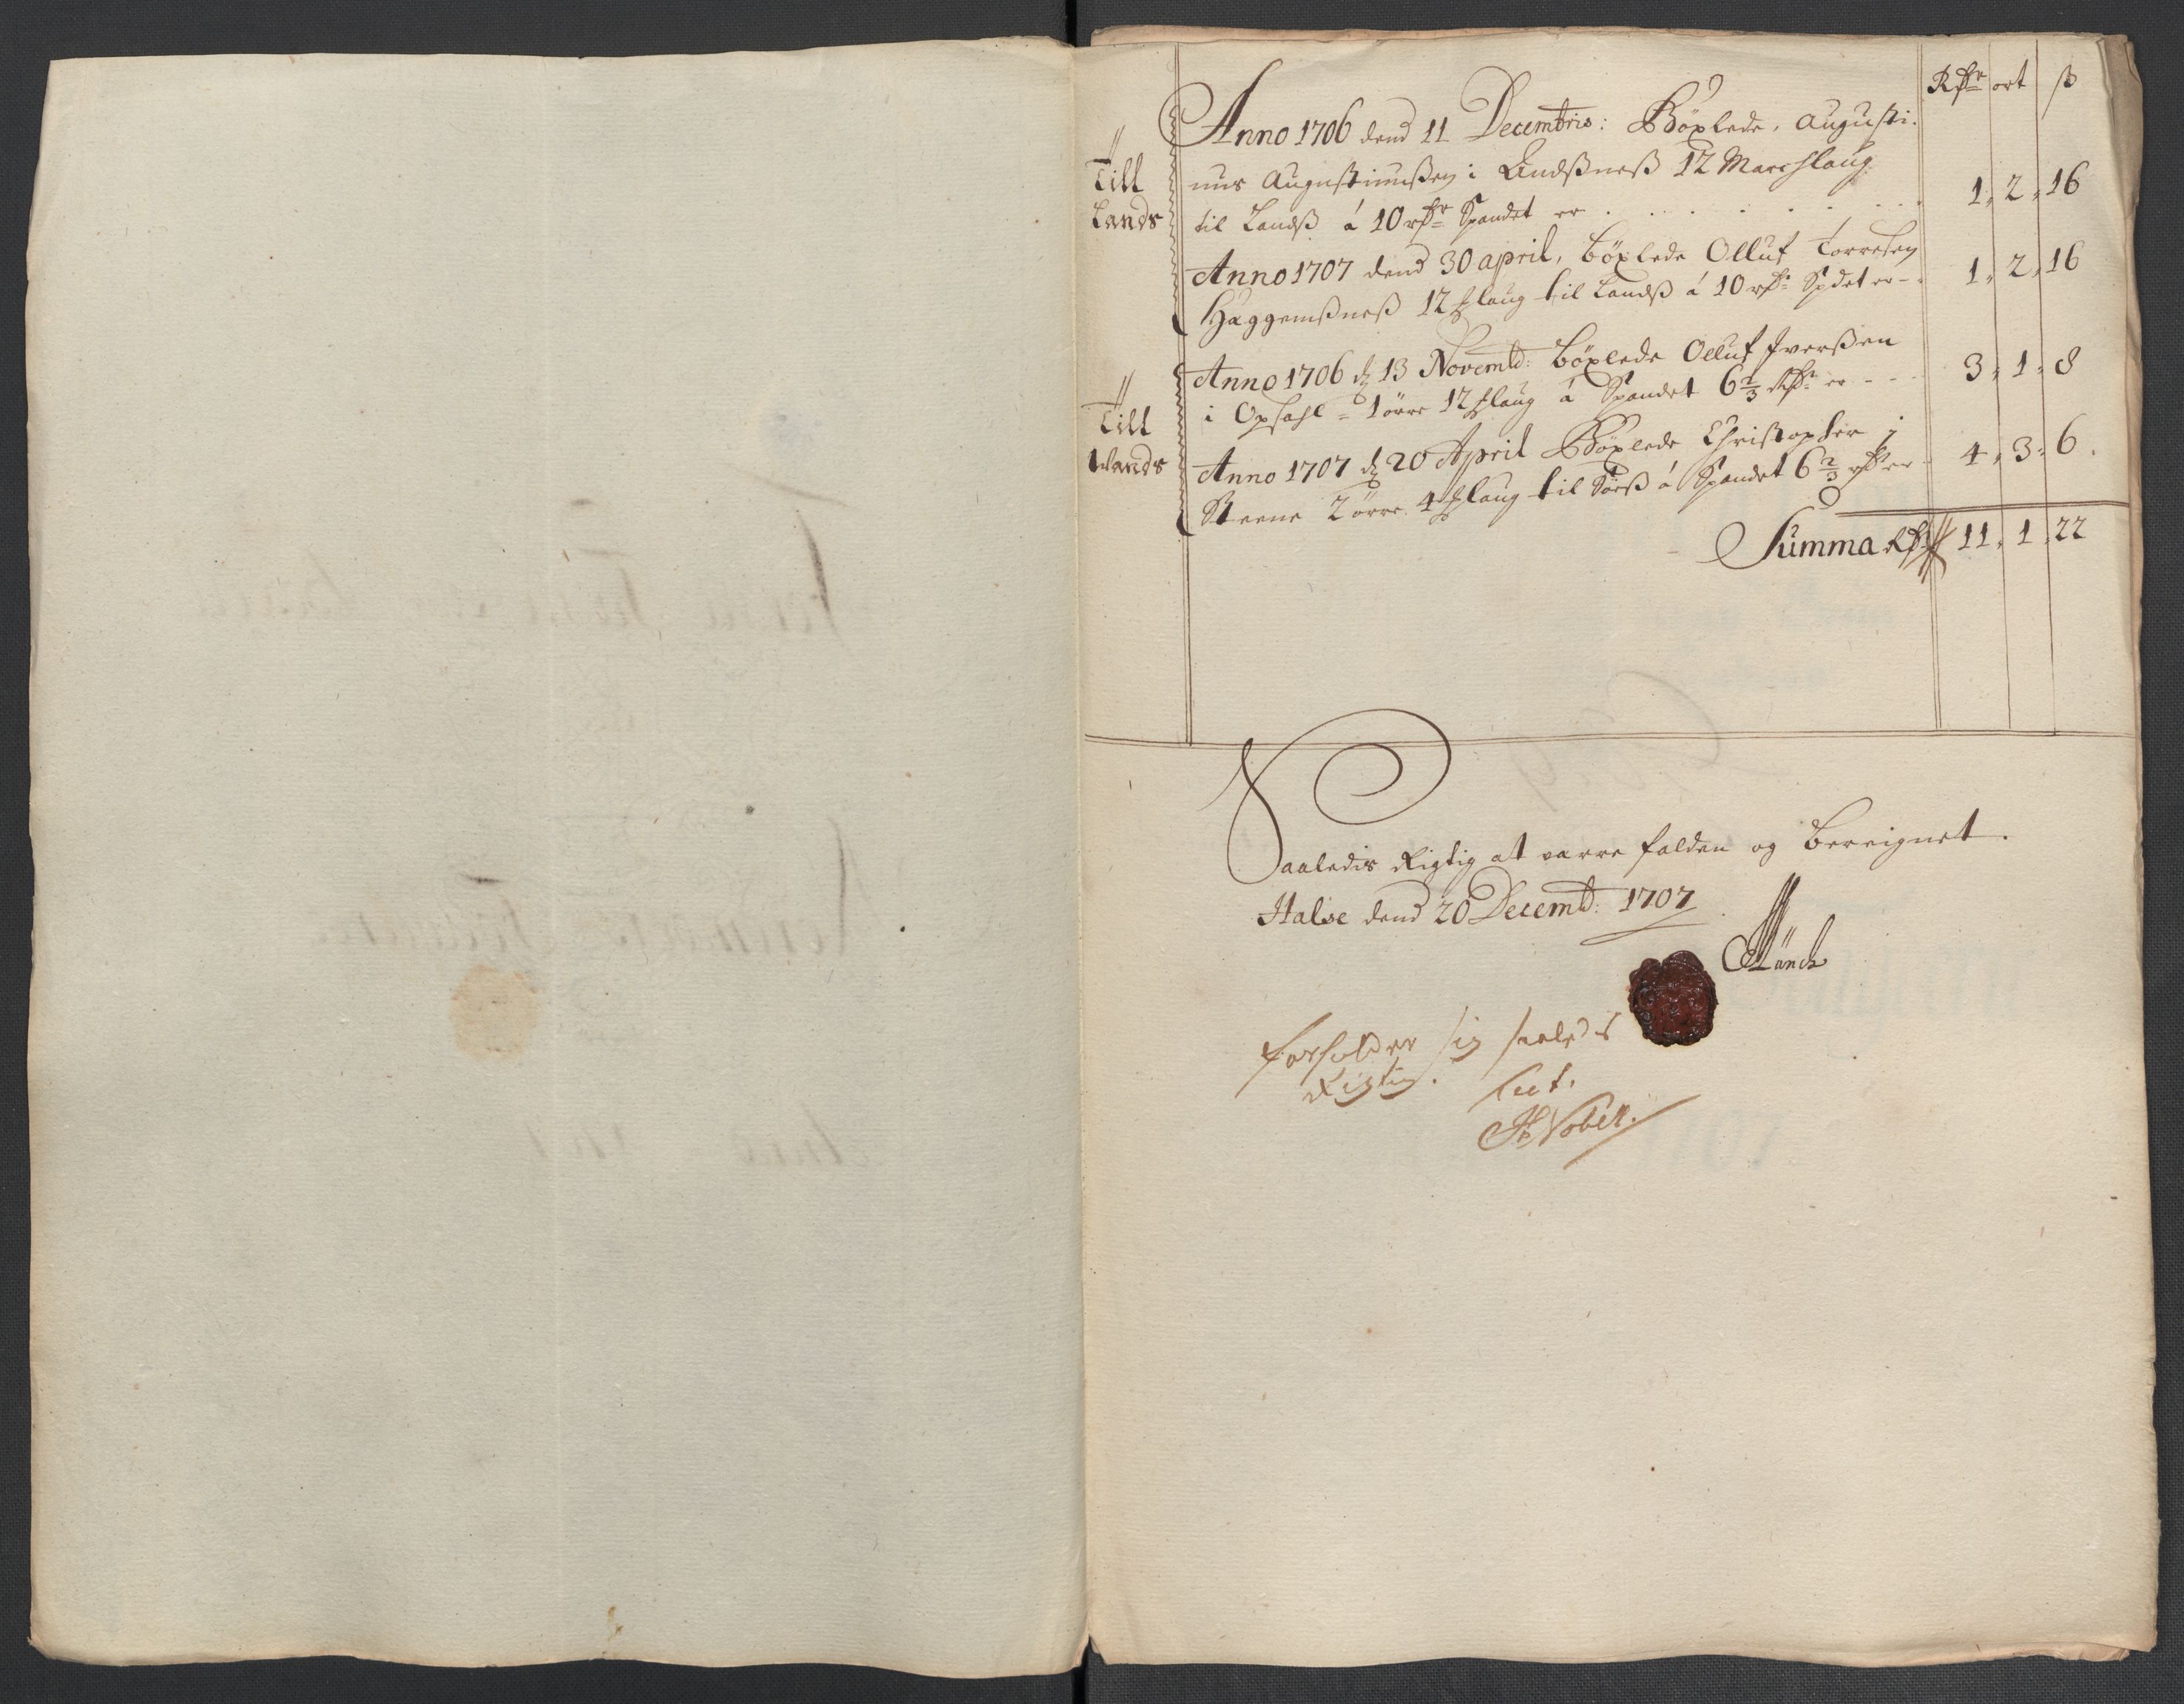 Rdr ort ß
Anno 1706 dend 11 Decembris: Böxlede, Augusti-
Till
Lands
nus Augustinußen i Lindßneß 12 Marchlaug
til Landß á 10 rdr Spandet er . . . . . . . 1, 2, 16
Anno 1707 dend 30 april, böxlede Olluf Torresen
Haggemßneß 12 ₰laug til Landß á 10 rdr Spdet er - 1, 2, 16
Till
Wands
Anno 1706 d 13 Novembd: böxlede Olluf Iverßen
i Opsahl = 1 örre 12 ₰laug á Spandet 6 2/3 Rdr er - - 3, 1, 8
Anno 1707 d 20 April Böxlede Christopher i
Steene 2 örre 4 ₰laug til Söeß á Spandet 6 2/3 rdr er 4, 3, 6.
Summa Rdr 11, 1, 22
Saaledis Rigtig at være falden og Bereignet.
Halse dend 20 Decembd: 1707
Münch
forholder sig saaledis
Rigtig.
test.
H Nobell.